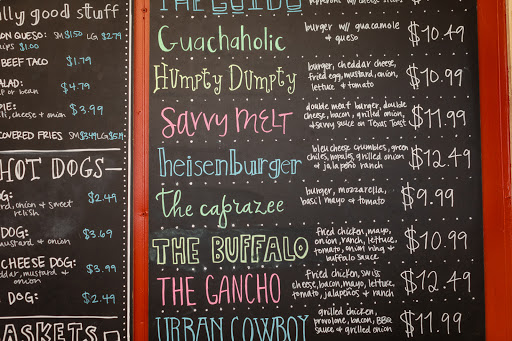 lly good stuff
ON QUESO: SM $1.50 LG $2.79
ups $1.00
BEEF TACO $1.79
ALAD: $4.79
or bean
PIE: $3.99
li, cheese + onion
COVERED FRIES SM $3.49 LG $5.19
HOT DOGS
G: $2.49
rd, onion + sweet
relish
DOG: $3.69
mustard + onion
CHEESE DOG: $3.99
ddar, mustard +
onion
DOG: $2.49
ASKETS
THE GUIDO
Guachaholic burger w/ guacamole
+ queso $10.49
Humpty Dumpty burger, cheddar cheese,
fried egg, mustard, onion,
lettuce + tomato $10.99
Savvy MELT double meat burger, double
cheese, bacon, grilled onion
+ savvy sauce on Texas Toast $11.99
heisenburger bleu cheese crumbles, green
chiles, nopales, grilled onion
+ jalapeño ranch $12.49
the caprazee burger, mozzarella,
basil mayo + tomato $9.99
THE BUFFALO fried chicken, mayo,
onion, ranch, lettuce,
tomato, onion ring +
buffalo sauce $10.99
THE GANCHO fried chicken, swiss
cheese, bacon, mayo, lettuce,
tomato, jalapeños + ranch $12.49
URBAN COWBOY grilled chicken,
provolone, bacon, BBQ
sauce + grilled onion $11.99